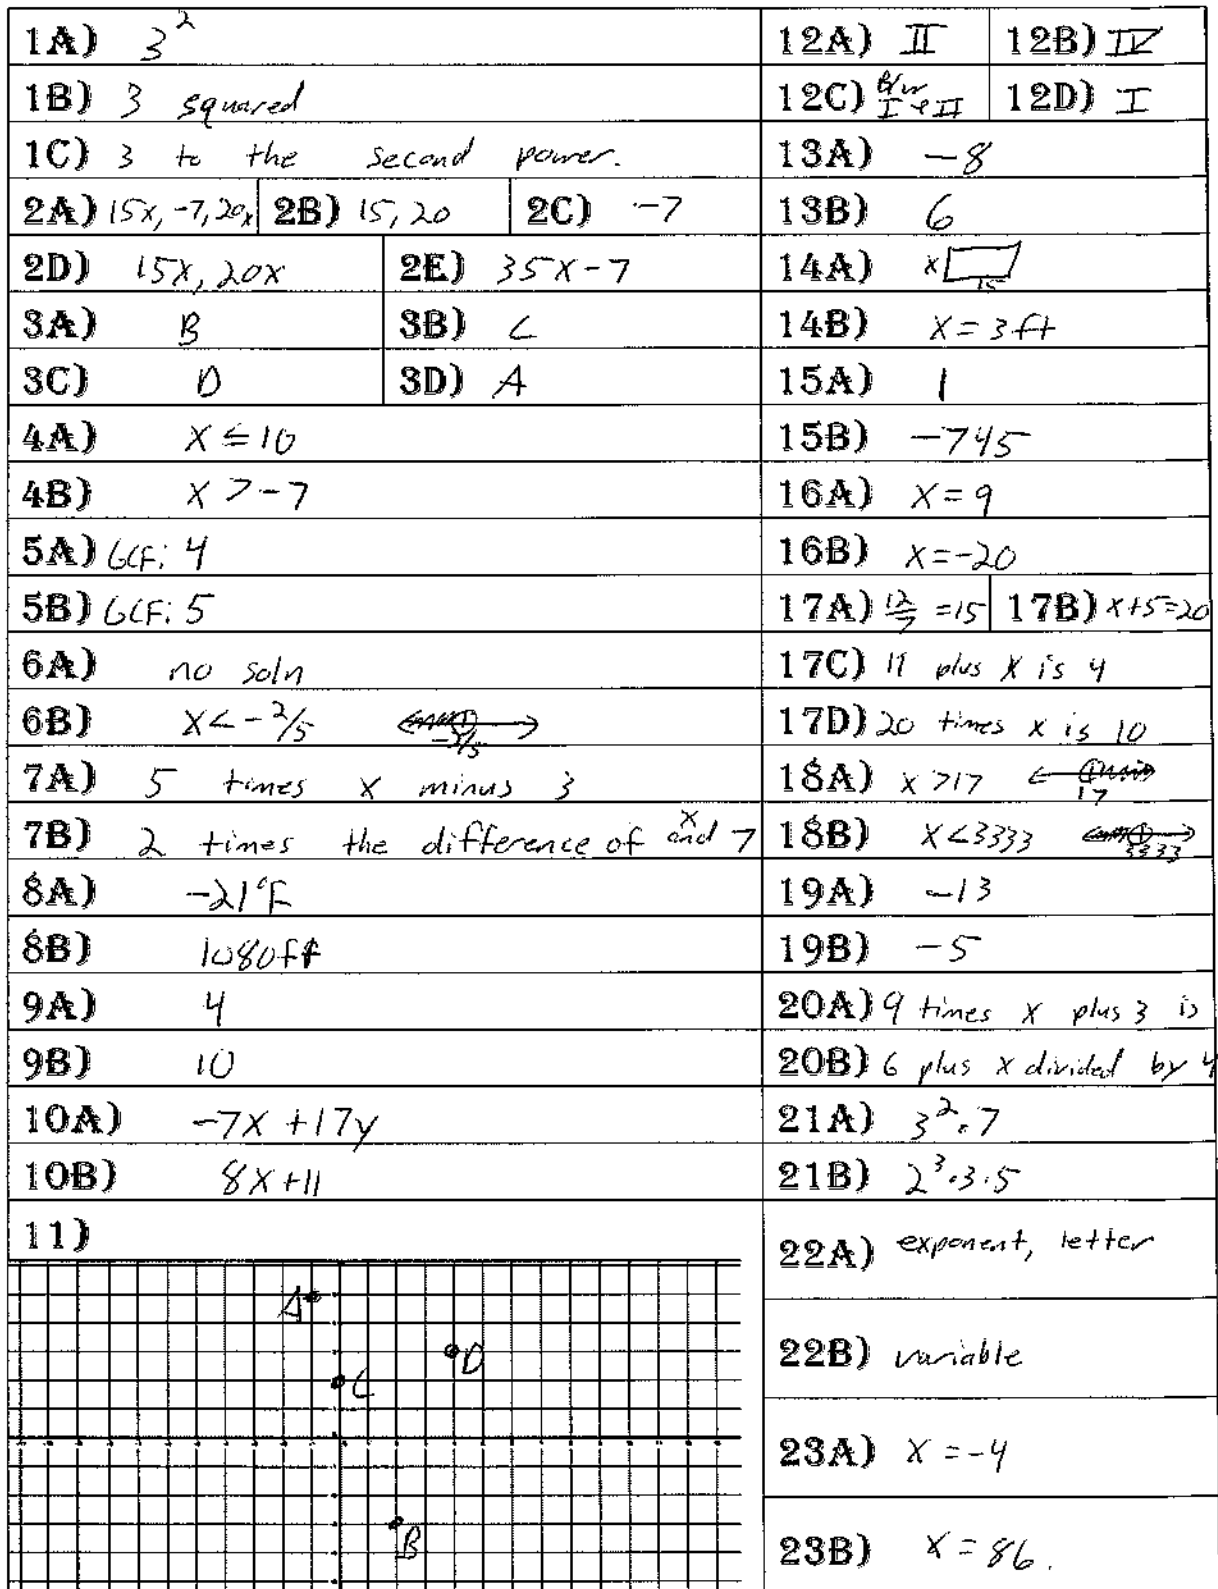 1A) 3²
1B) 3 squared
1C) 3 to the second power.
2A) 15x, -7, 20x 2B) 15, 20 2C) -7
2D) 15x, 20x 2E) 35x-7
3A) B 3B) C
3C) D 3D) A
4A) x ≤ 10
4B) x > -7
5A) GCF: 4
5B) GCF: 5
6A) no soln
6B) x < -2/5 -2/5
7A) 5 times x minus 3
7B) 2 times the difference of x and 7
8A) -21°F
8B) 1080ft
9A) 4
9B) 10
10A) -7x + 17y
10B) 8x + 11
11)
A
D
C
B
12A) II 12B) IV
12C) B/w I & II 12D) I
13A) -8
13B) 6
14A) x 15
14B) x = 3ft
15A) 1
15B) -745
16A) x = 9
16B) x = -20
17A) 12/7 = 15 17B) x+5=20
17C) 11 plus x is 4
17D) 20 times x is 10
18A) x > 17 17
18B) x < 3333 3333
19A) -13
19B) -5
20A) 9 times x plus 3 is
20B) 6 plus x divided by 4
21A) 3²·7
21B) 2³·3·5
22A) exponent, letter
22B) variable
23A) x = -4
23B) x = 86.